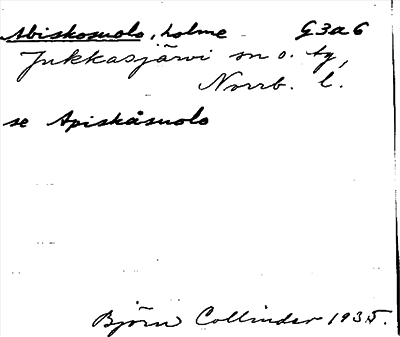 Abiskosuolo, holme G3a6
Jukkasjärvi sn o. tg,
Norrb. l.
se Apiskåsuolo
Björn Collinder 1935.